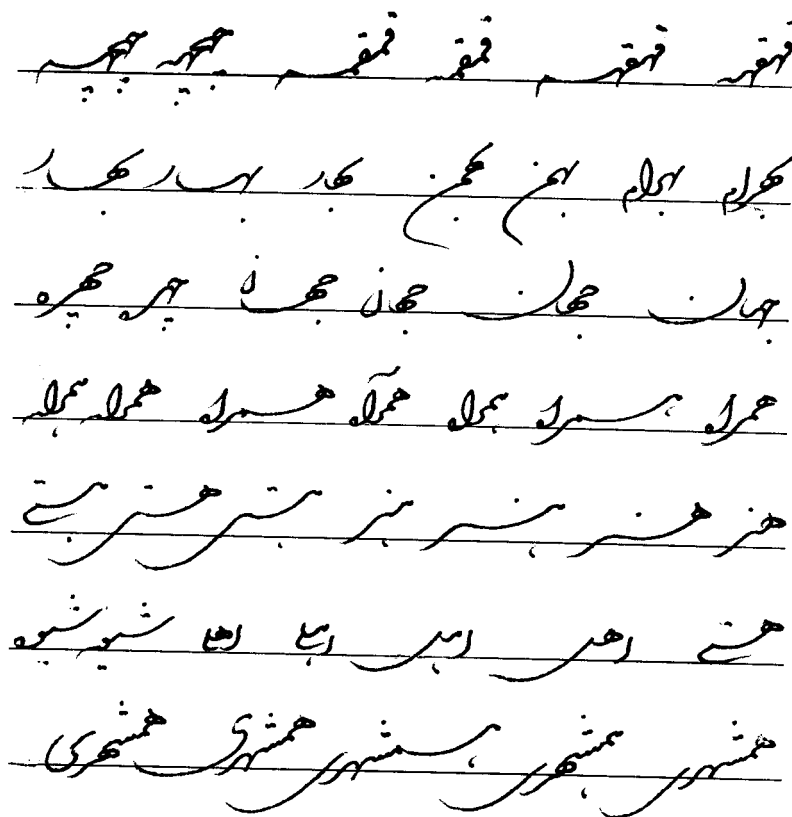 قهقهه قهقهه قمقمه قمقمه چپیه چپیه
بهرام بهرام بهمن بهمن بهار بهار بهار
جهان جهان جهان جهان چهره چهره
همراه همراه همراه همراه همراه همراه همراه
هنر هنر هنر هنر هستی
هستی اهل اهل اهلی اهلی شیوه شیوه
همشهری همشهری همشهری همشهری همشهری